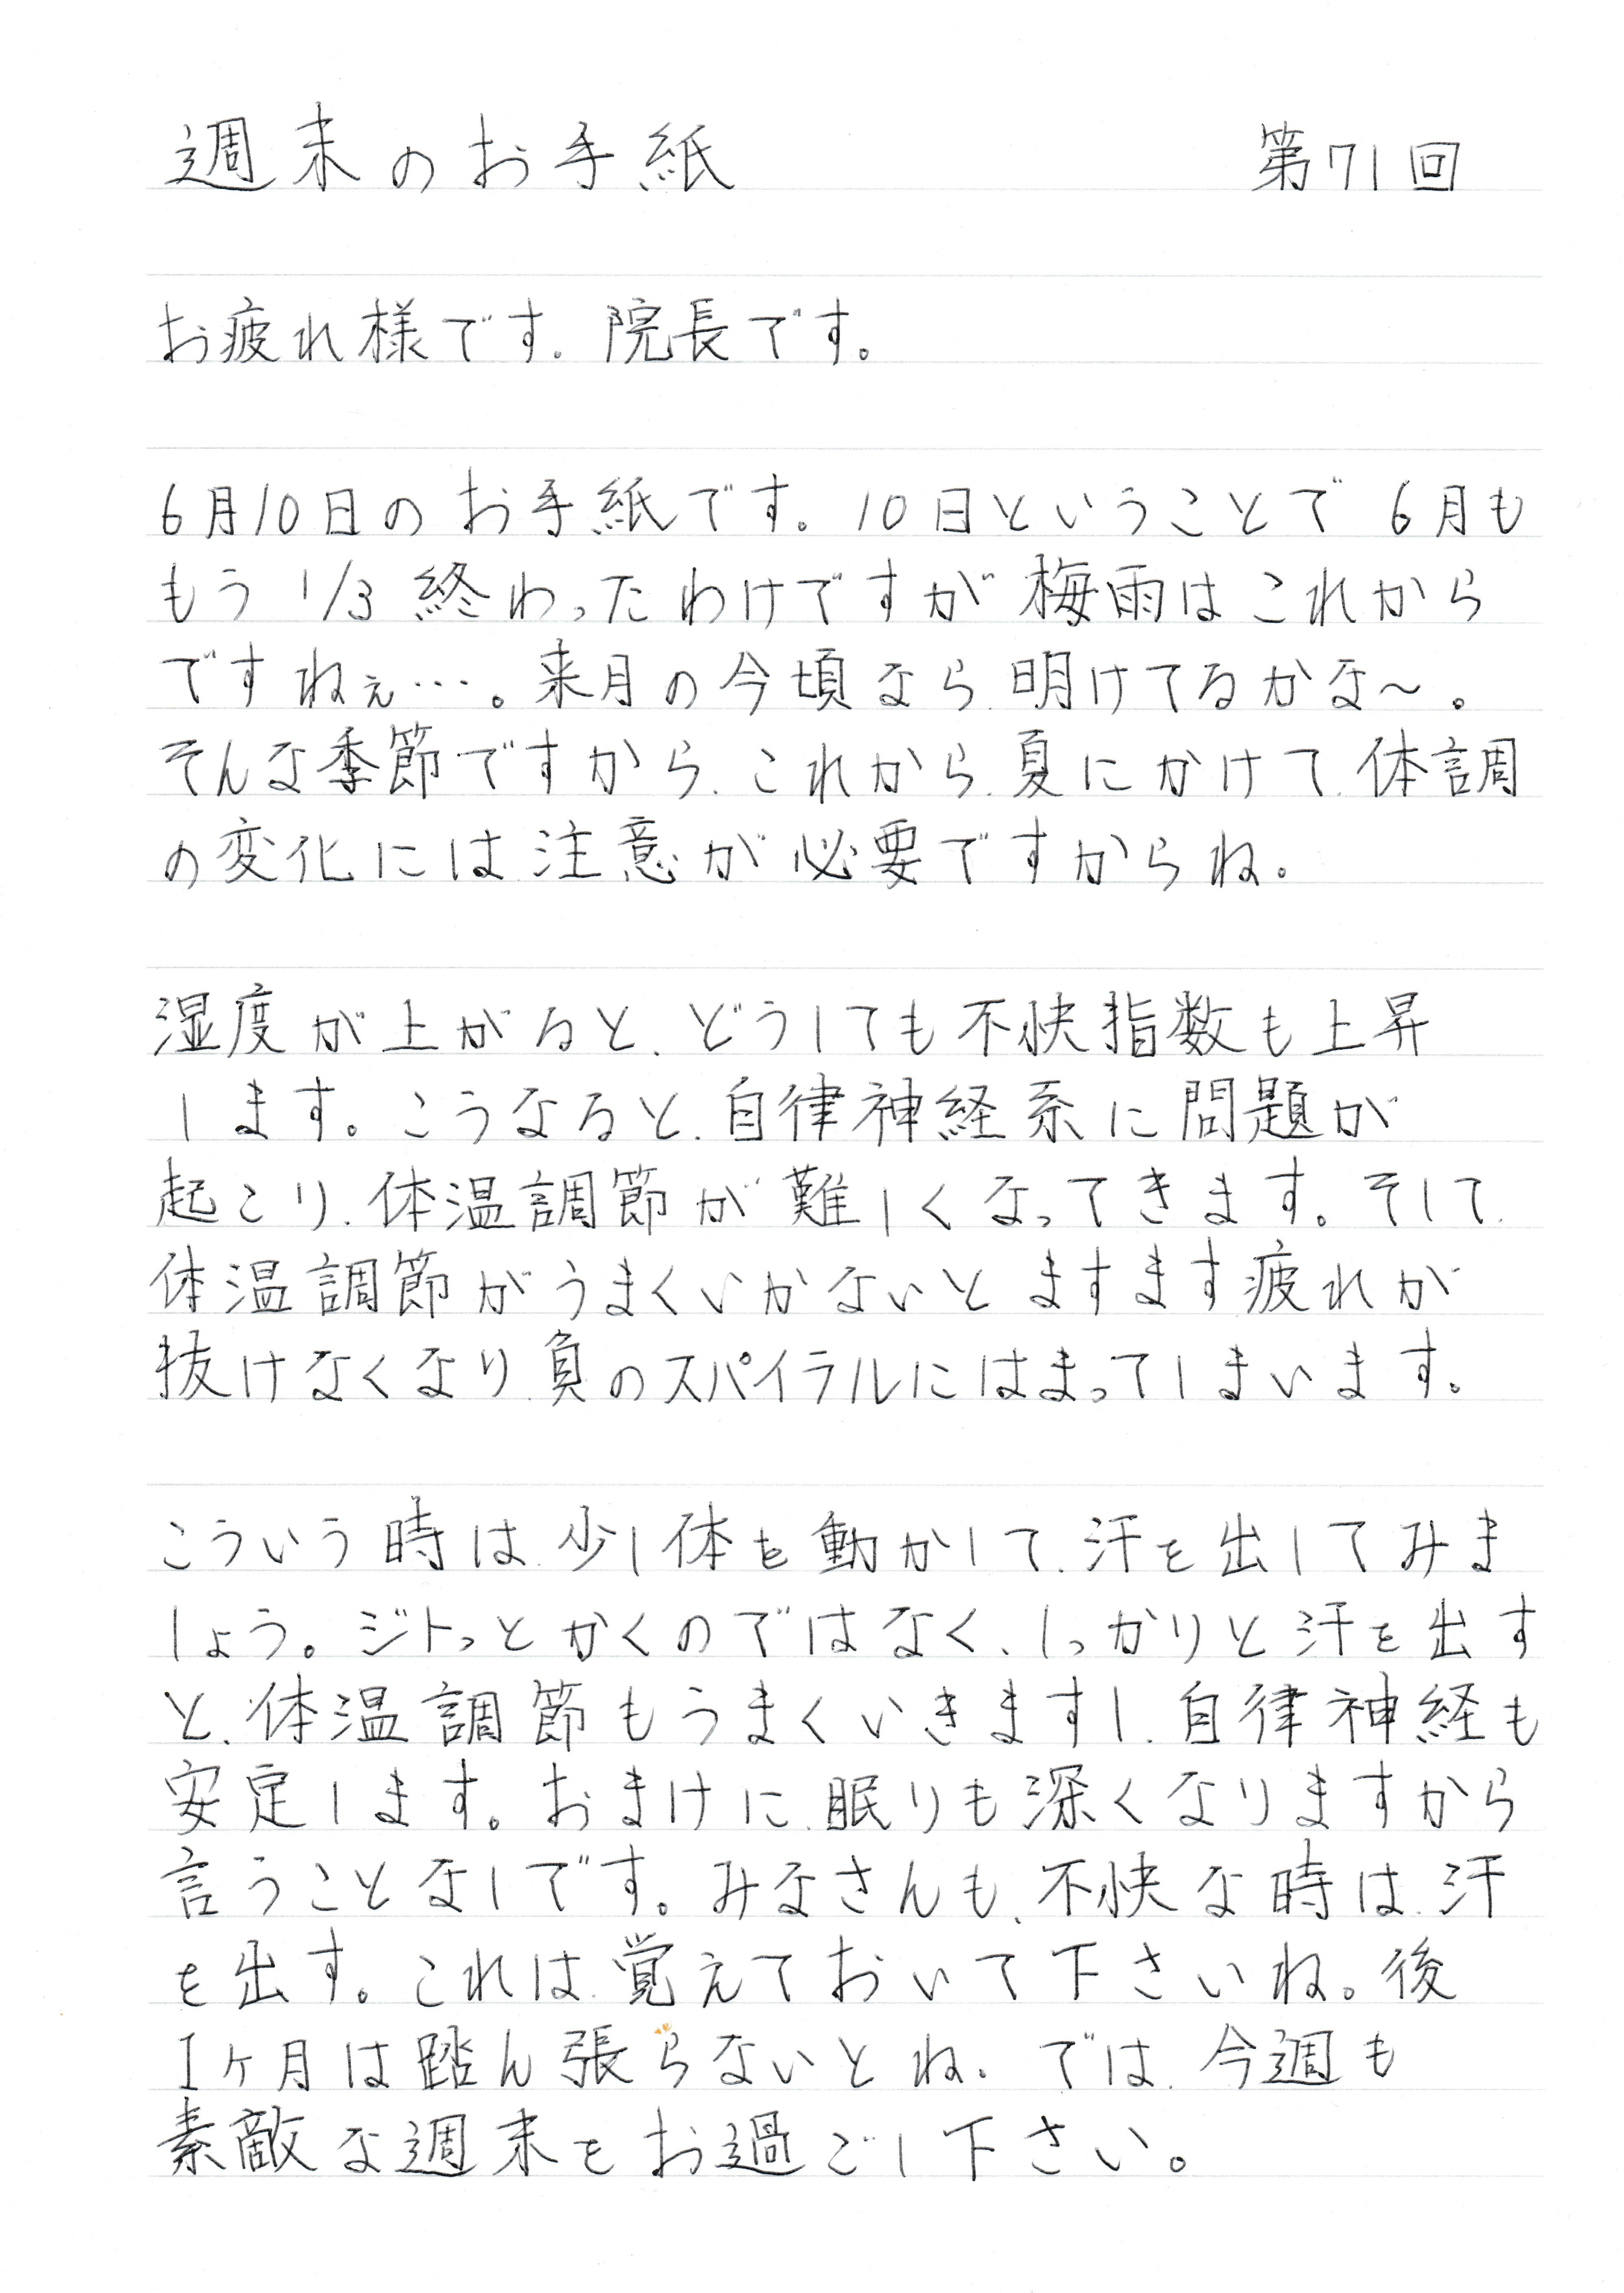 週末のお手紙 第71回
お疲れ様です、院長です。
6月10日のお手紙です。10日ということで6月も
もう1/3終わったわけですが梅雨はこれから
ですねぇ…。来月の今頃なら、明けてるかな〜。
そんな季節ですから、これから、夏にかけて、体調
の変化には注意が必要ですからね。
湿度が上がると、どうしても不快指数も上昇
します。こうなると、自律神経系に問題が
起こり、体温調節が難しくなってきます。そして、
体温調節がうまくいかないとますます疲れが
抜けなくなり、負のスパイラルにはまってしまいます。
こういう時は、少し体を動かして、汗を出してみま
しょう。ジトっとかくのではなく、しっかりと汗を出す
と、体温調節もうまくいきますし、自律神経も
安定します。おまけに、眠りも深くなりますから
言うことなしです。みなさんも、不快な時は、汗
を出す。これは、覚えておいて下さいね。後
1ヶ月は踏ん張らないとね。では、今週も
素敵な週末をお過ごし下さい。